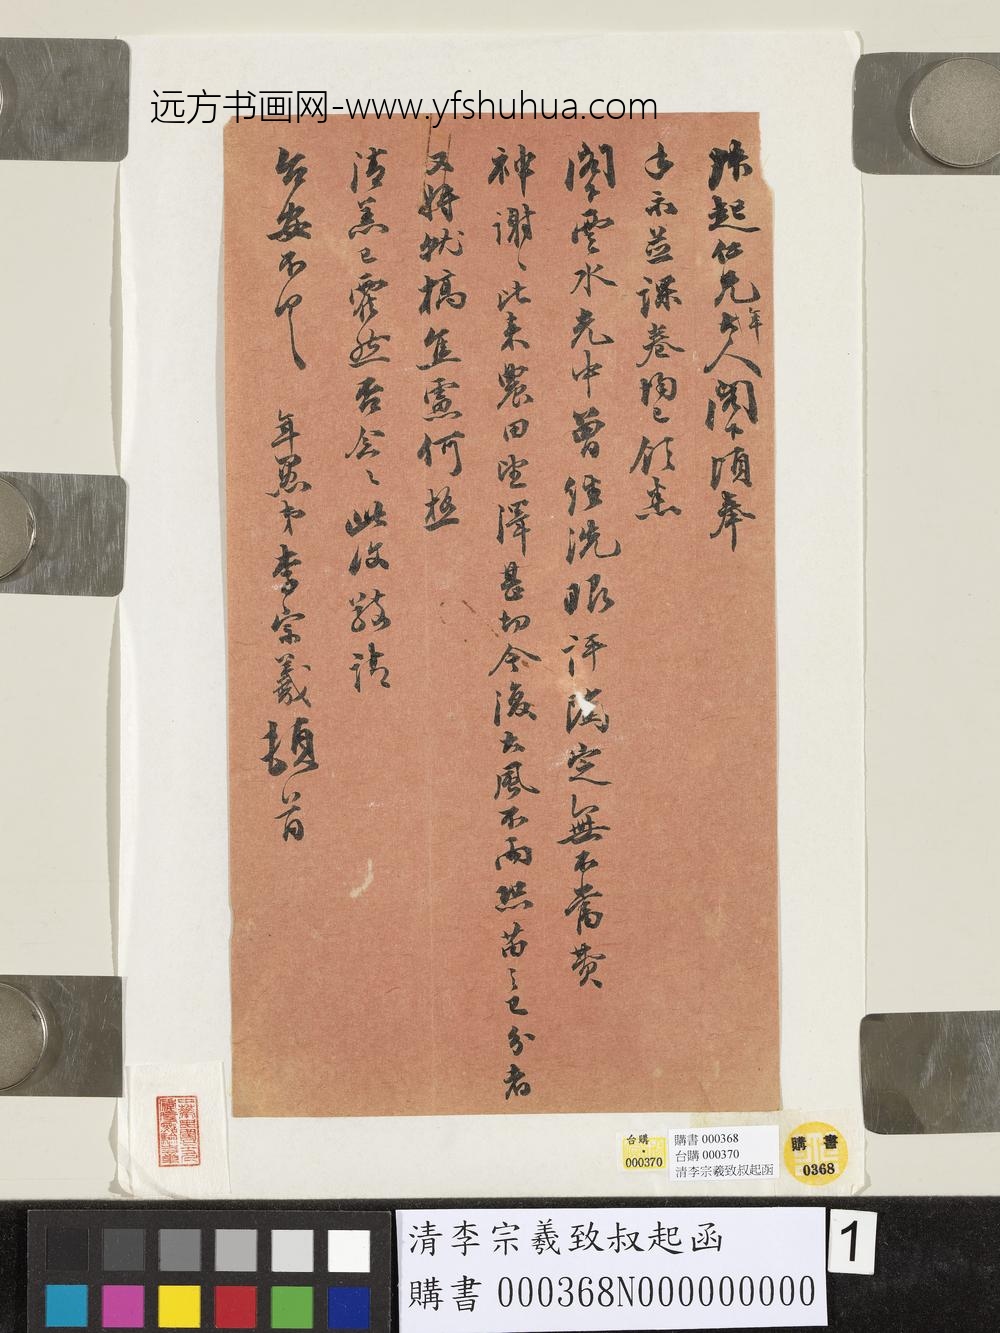 远方书画网-www.yfshuhua.com
起仁兄年大人閣下頃奉
手示並課卷均已領悉
閣下雲水光中曾經洗眼評隲定無不當費
神謝〻比來農田望澤甚切今復大風不雨照苗之已分者
又將就槁焦慮何極
清恙已霍然否念〻此復敬請
台安不
年愚弟李宗羲頓首
台購
000370
購書 000368
台購 000370
清李宗羲致叔起函
購書
0368
清李宗羲致叔起函
購書 000368N000000000
1